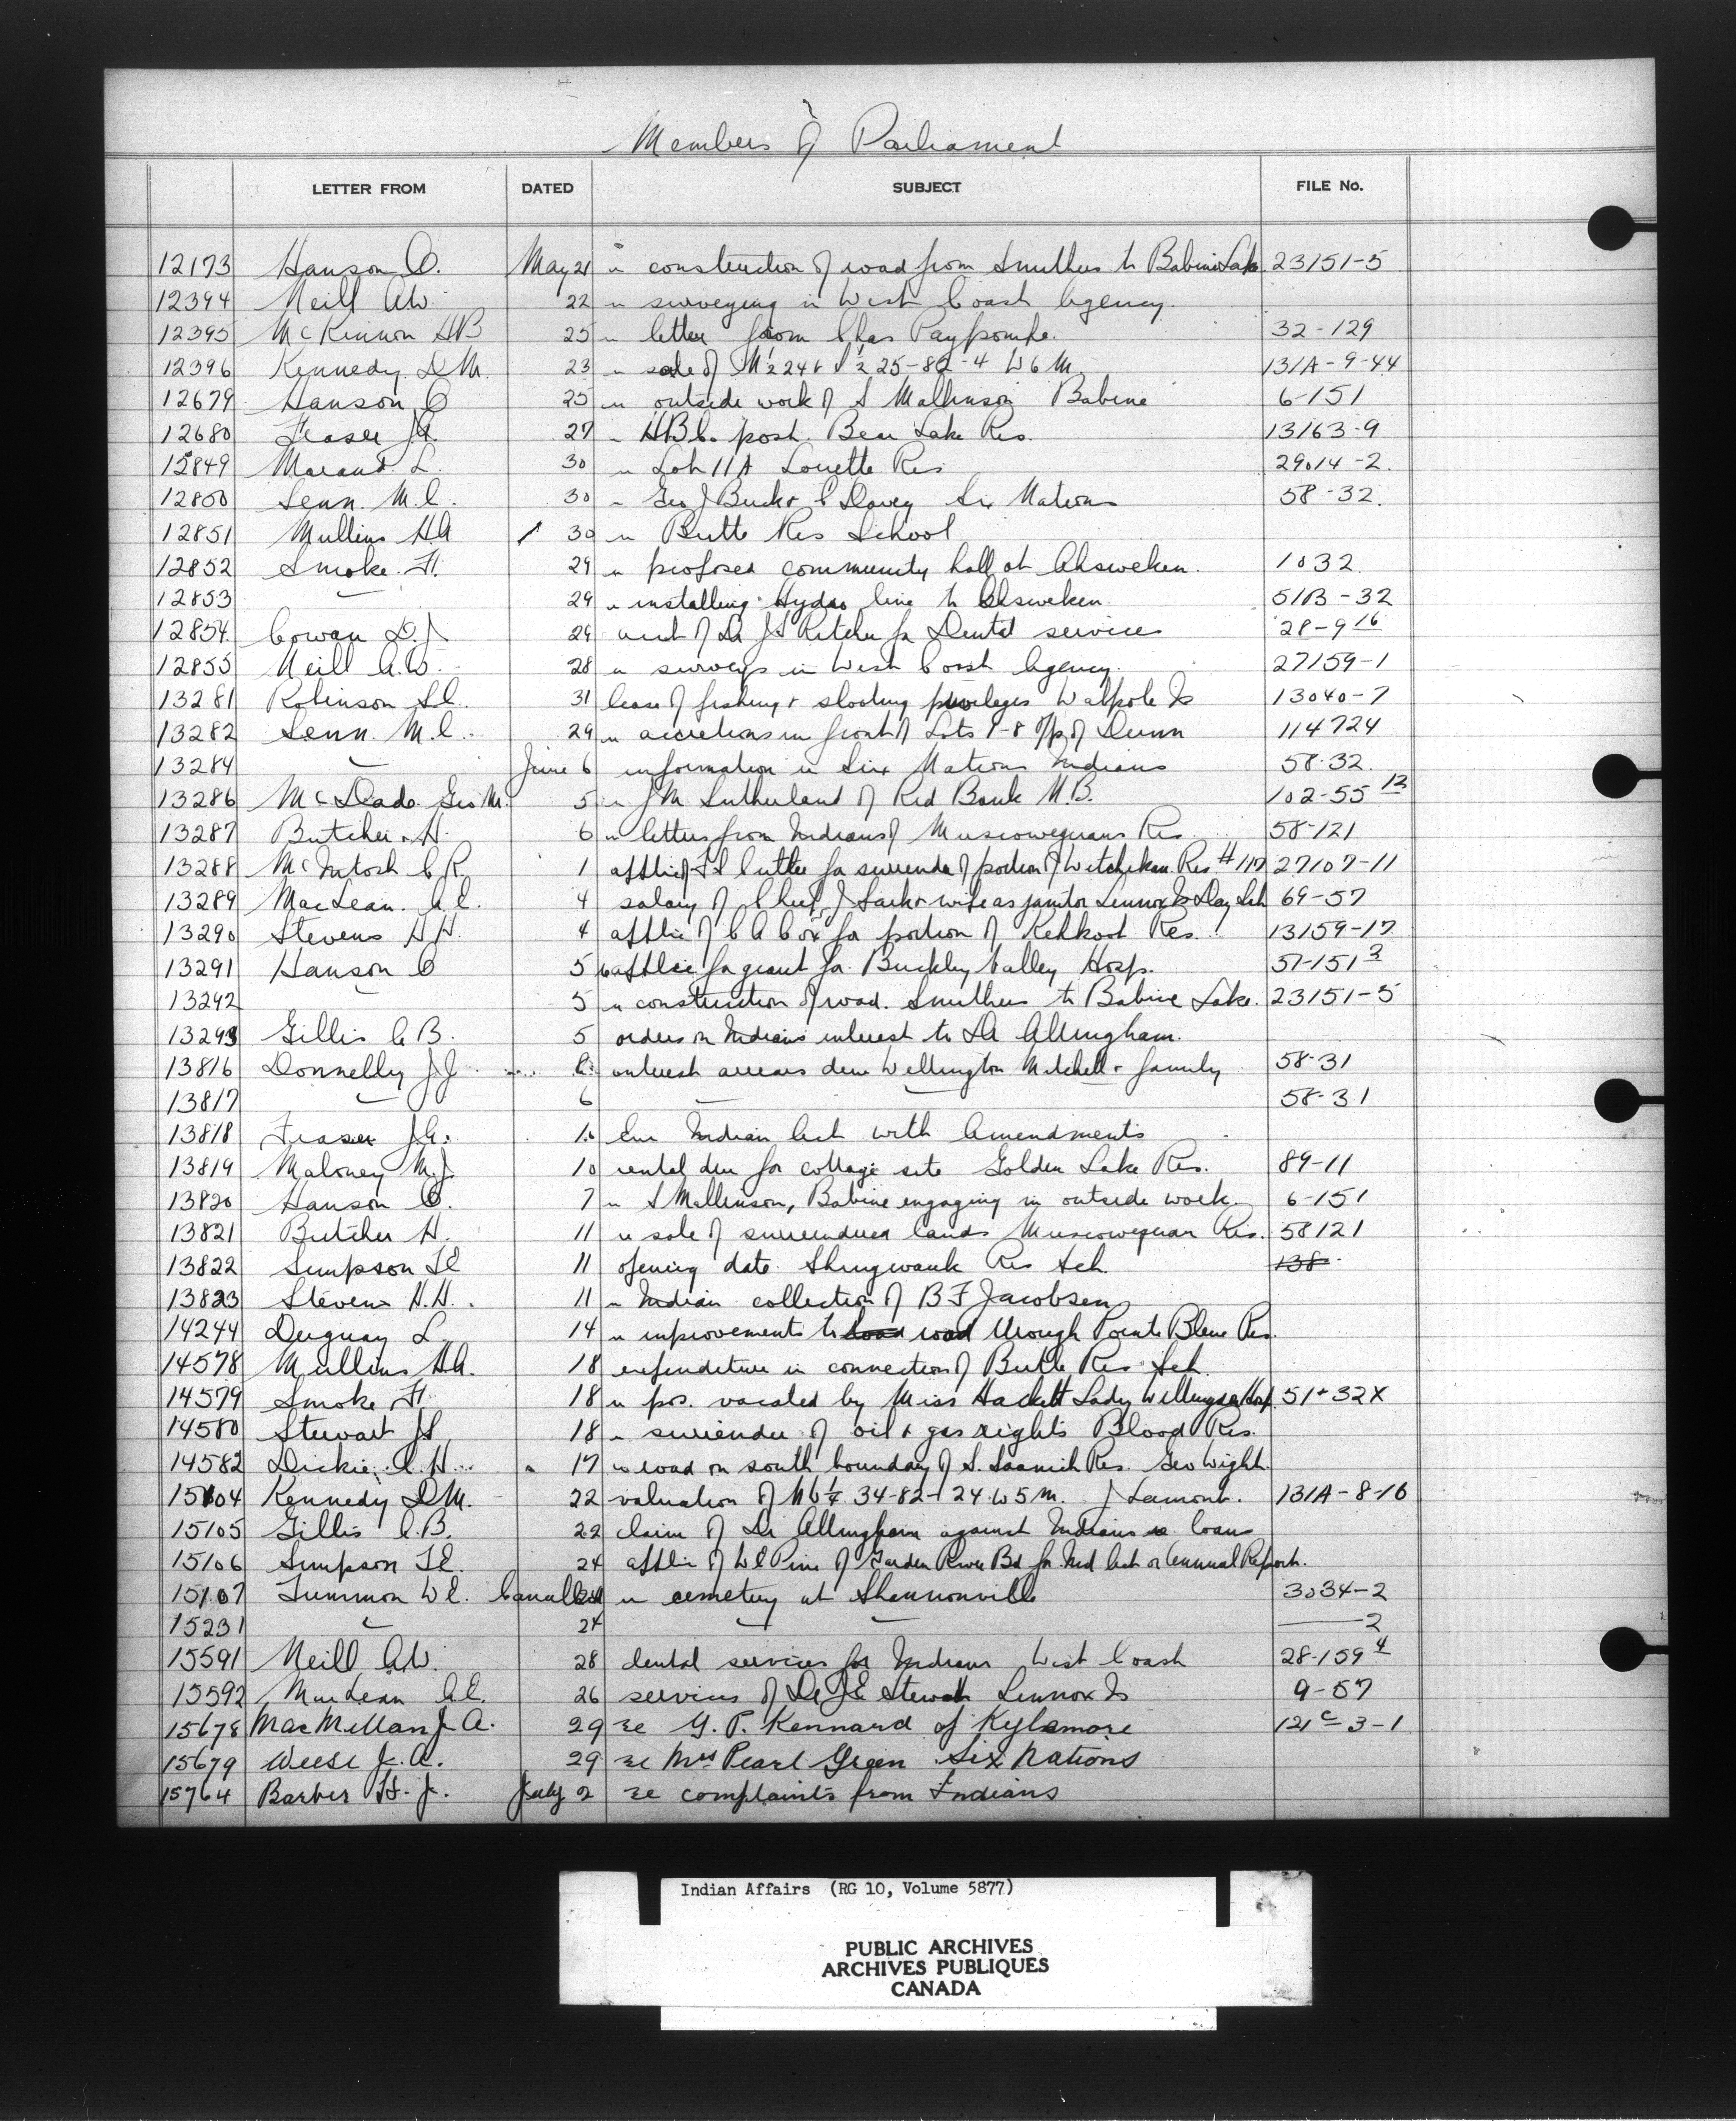 Members of Parliament
LETTER FROM DATED SUBJECT FILE No.
12173 Hanson O. May 21 re construction of road from Smithers to Babine Lake 23151-5
12394 Neill A.W. 22 re surveying in West Coast Agency.
12395 McKinnon HB 25 re letter from Chas Paypompe. 32-129
12396 Kennedy D.M. 23 re sale of N½ 24 & S½ 25-82-4 W6M 131A-9-44
12679 Hanson O 25 re outside work of S Mallinson Babine 6-151
12680 Fraser J.A. 27 re HBC. post. Bear Lake Res. 13163-9
12849 Marand L. 30 re Lot 11A Lorette Res 29014-2.
12850 Senn. M.C. 30 re Geo J Buck & C Davey Six Nations 58-32.
12851 Mullins HA 30 re Birtle Res School
12852 Smoke. F. 29 re proposed community hall at Ohsweken. 1032
12853 " 29 re installing Hydro line to Ohsweken. 51B-32
12854 Cowan D.J 29 acct of Dr J.S Ritchie for Dental services 28-9 16
12855 Neill A.W. 28 re surveys in West Coast Agency. 27159-1
13281 Robinson S.C. 31 lease of fishing & shooting privileges Walpole Is 13040-7
13282 Senn. M.C. 29 re accretions in front of Lots 1-8 Tp of Dunn 114724
13284 " June 6 information re Six Nations Indians 58-32.
13286 McDade Geo M. 5 re J.M. Sutherland of Red Bank N.B. 102-55 13
13287 Butcher. H. 6 re letters from Indians of Muscowequans Res 58-121
13288 McIntosh C.R. 1 applic of F.S Cutler for surrender of portion of Witchekan Res #117 27107-11
13289 MacLean. A.E. 4 salary of Chief J Sark & wife as janitor Lennox Is Day Sch 69-57
13290 Stevens H.H. 4 applic of C A Cox for portion of Kehkoot Res. 13159-17
13291 Hanson O 5 applic for grant for Buckley Valley Hosp. 57-151 3
13292 " 5 re construction of road. Smithers to Babine Lake. 23151-5
13293 Gillis C.B. 5 orders on Indians interest to Dr Allingham.
13816 Donnelly J.J 6 interest arrears due Wellington Mitchell & family 58-31
13817 " 6 " 58-31
13818 Fraser J.A. 10 Encl Indian Act with Amendments
13819 Maloney M.J. 10 rental due for cottage site Golden Lake Res. 89-11
13820 Hanson O. 7 re S Mallinson, Babine engaging in outside work. 6-151
13821 Butcher H. 11 re sale of surrendered lands Muscowequan Res. 58121
13822 Simpson T.E 11 opening date Shingwauk Res Sch. 138
13823 Stevens H.H. 11 re Indian collection of B F Jacobsen
14244 Duguay L 14 re improvements to road through Pointe Bleue Res.
14578 Mullins H.A. 18 expenditure in connection of Birtle Res. Sch.
14579 Smoke F. 18 re pos. vacated by Miss Hackett Lady Willingdon Hosp. 51+32X
14580 Stewart J.S 18 re surrender of oil & gas rights Blood Res.
14582 Dickie C.H. 17 re road on south boundary of S. Saanich Res. Geo Wight.
15104 Kennedy D.M. 22 valuation of NE¼ 34-82-24 W5M. J Lamont. 131A-8-16
15105 Gillis C.B. 22 claim of Dr Allingham against Indians re loans
15106 Simpson T.E. 24 applic of W E Pine of Garden River Bd for Ind Act or Annual Report.
15107 Tummon W E. Cancelled re cemetery at Shannonville 3034-2
15231 " 24 " —2
15591 Neill A.W. 28 dental services for Indians West Coast 28-159 4
15592 MacLean A.E. 26 services of Dr J.E Stewart Lennox Is 9-57
15678 MacMillan J. A. 29 re G. P. Kennard of Kylemore 121c-3-1
15679 Weese J. A. 29 re Mrs Pearl Green Six Nations
15764 Barber H. J. July 2 re complaints from Indians
Indian Affairs (RG 10, Volume 5877)
PUBLIC ARCHIVES
ARCHIVES PUBLIQUES
CANADA